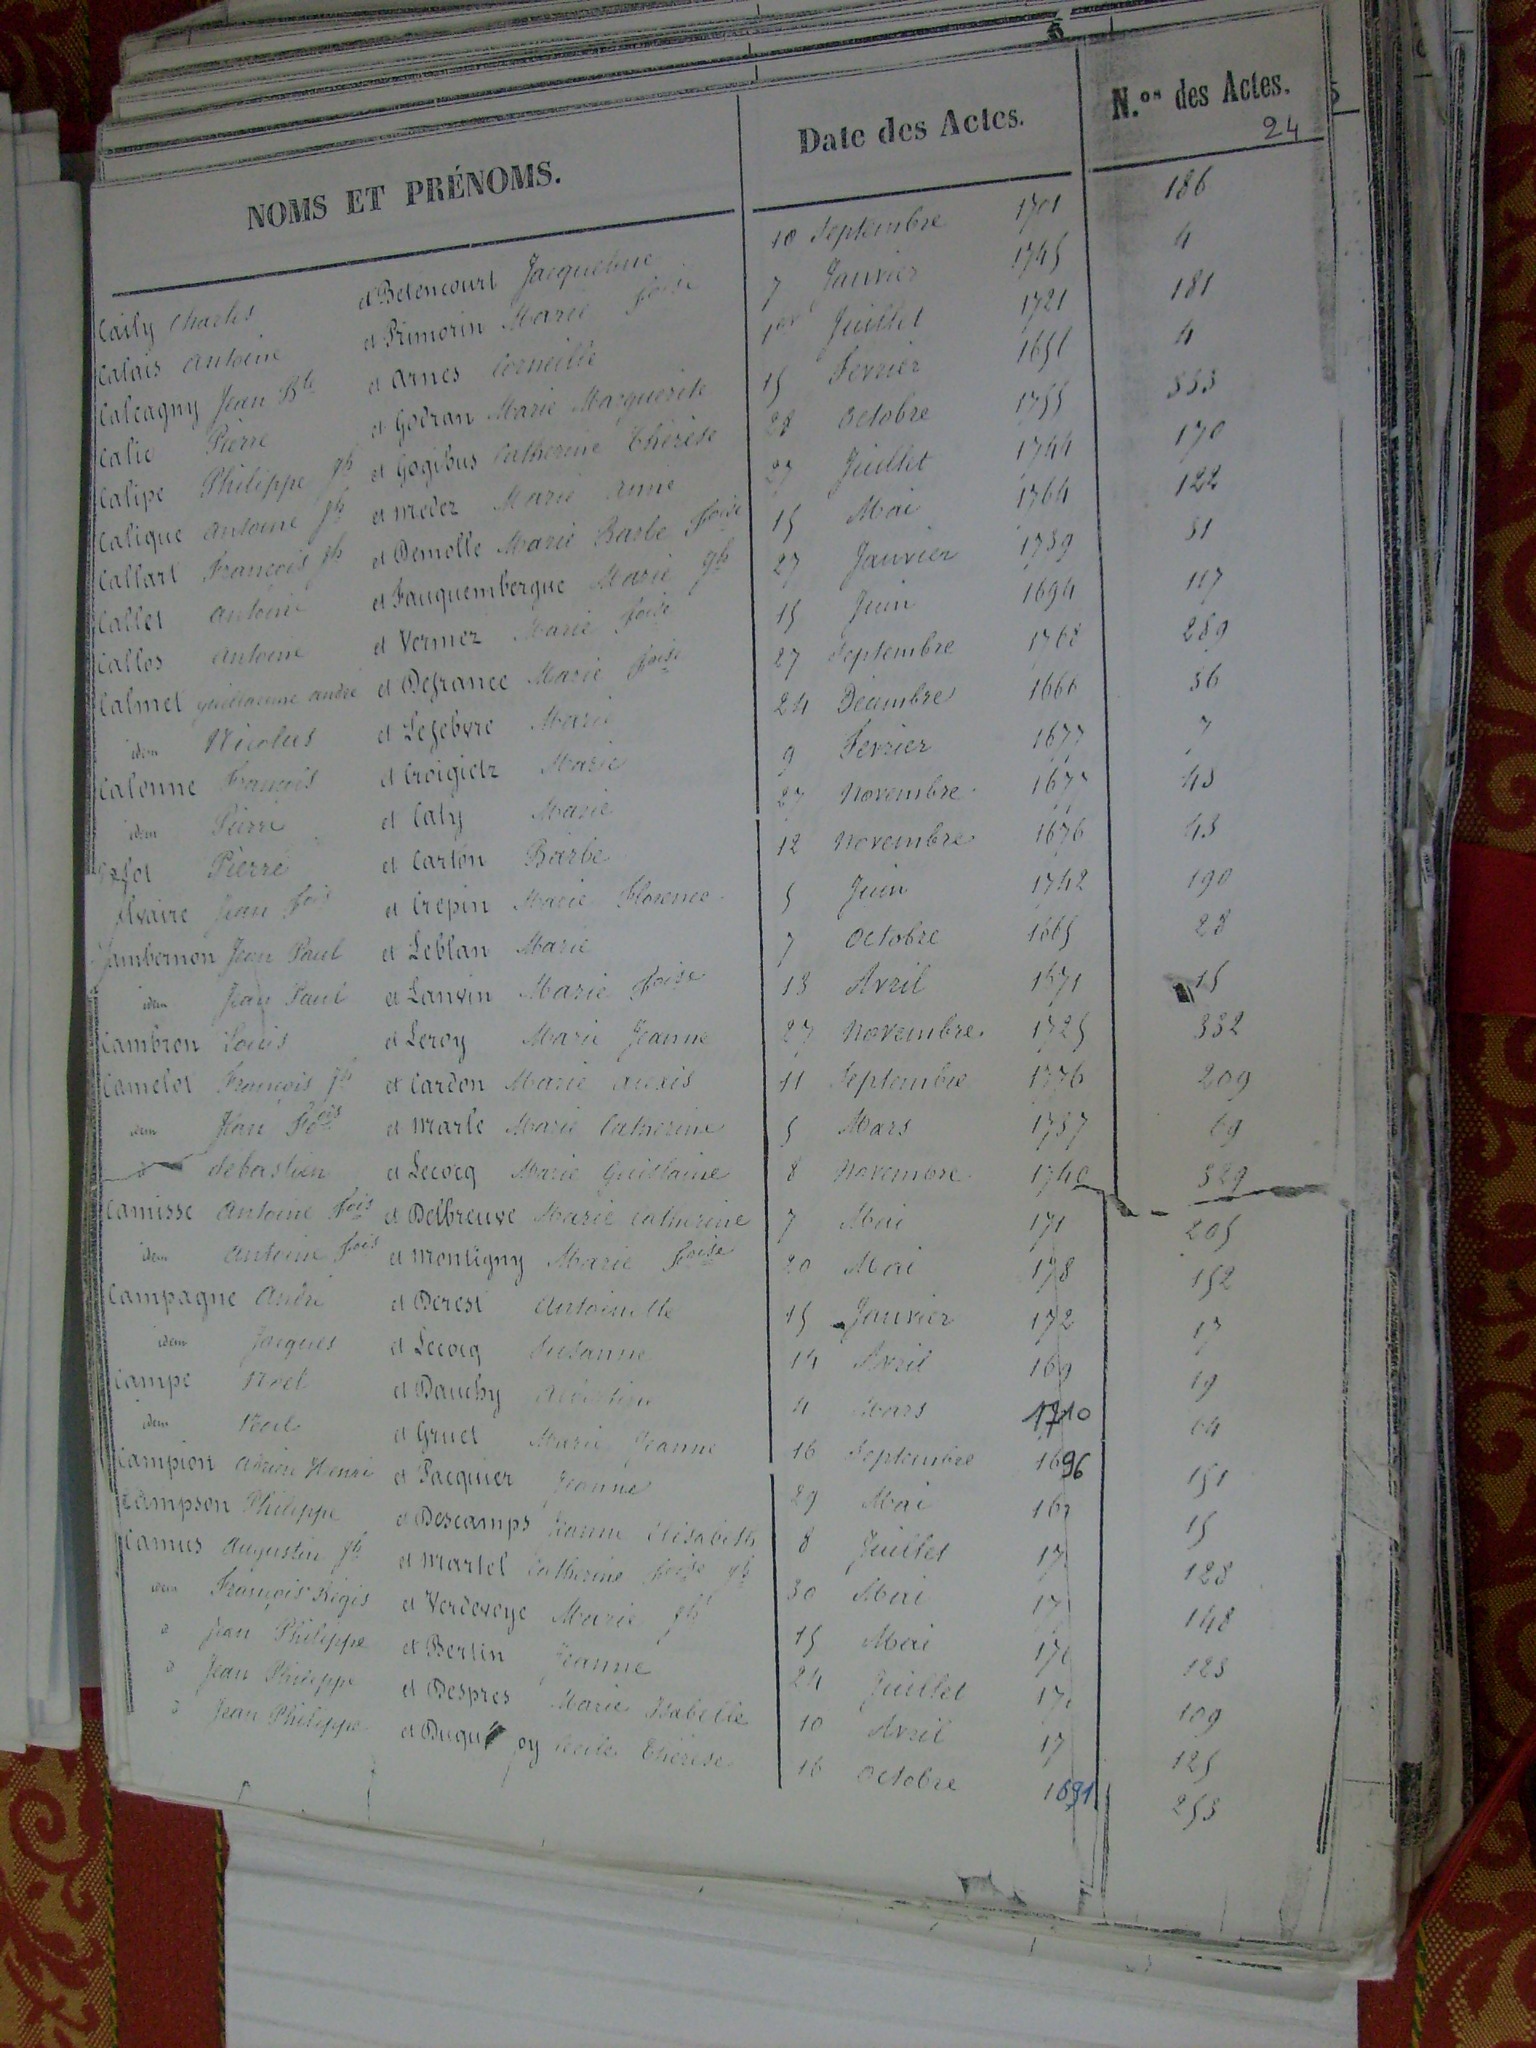 NOMS ET PRÉNOMS. Date des Actes. N.os des Actes.
24
Caily Charles et Betencourt Jacqueline 10 Septembre 1701 186
Calais Antoine et Primorin Marie foise 7 Janvier 1745 4
Calcagny Jean Bte et Arnes Corneille 1er Juillet 1721 181
Calic Pierre et Godran Marie Marguerite 15 Fevrier 4
Calipe Philippe jh et Gogibus Catherine Thérèse 28 Octobre 1755 333
Calique Antoine jh et Medez Marie Anne 27 Juillet 1744 170
Callart François jh et Demolle Marie Barbe foise 15 Mai 1764 122
Callet Antoine et Fauquembergue Marie jh 27 Janvier 1739 31
Callos Antoine et Vermez Marie foise 15 Juin 1694 117
Calmet Guillaume André et Defrance Marie foise 27 Septembre 1768 289
idem Nicolas et Lefebvre Marie 24 Décembre 1666 36
Calonne François et Croigietz Marie 9 Fevrier 1677 7
idem Pierre et Caty Marie 27 Novembre 1677 43
Pierre et Carton Barbe 12 Novembre 1676 43
alvaire Jean fois et Crepin Marie Florence 5 Juin 1742 190
Cambernon Jean Paul et Leblan Marie 7 Octobre 1665 28
idem Jean Paul et Lanvin Marie foise 13 Avril 1671 15
Cambron Louis et Leroy Marie Jeanne 27 Novembre 1725 332
Camelot François jh et Cardon Marie Alexis 11 Septembre 1776 209
idem Jean Fois et Marle Marie Catherine 5 Mars 1737 69
d Sebastien et Lecocq Marie Guislaine 8 Novembre 1740 329
Camisse Antoine fois et Delbreuve Marie Catherine 7 Mai 171 205
idem Antoine fois et Montigny Marie foise 20 Mai 178 152
Campagne André et Derest Antoinette 15 Janvier 172 17
idem Jacques et Lecocq Susanne 14 Avril 169 19
Campe Noel et Dauchy 4 Mars 1710 64
idem Noel et Gruel Marie Jeanne 16 Septembre 1696 151
Campion Adrien Henri et Pacquier Jeanne 29 Mai 16 15
Campson Philippe et Descamps Jeanne Elisabeth 8 Juillet 17 128
Camus Augustin jh et Martel Catherine foise jh 30 Mai 17 148
idem François Régis et Verdevoye Marie jh 15 Mai 17 123
d Jean Philippe et Bertin Jeanne 24 Juillet 17 109
d Jean Philippe et Despres Marie Isabelle 10 Avril 17 125
d Jean Philippe et Duqu oy Cecile Thérèse 16 Octobre 1691 253